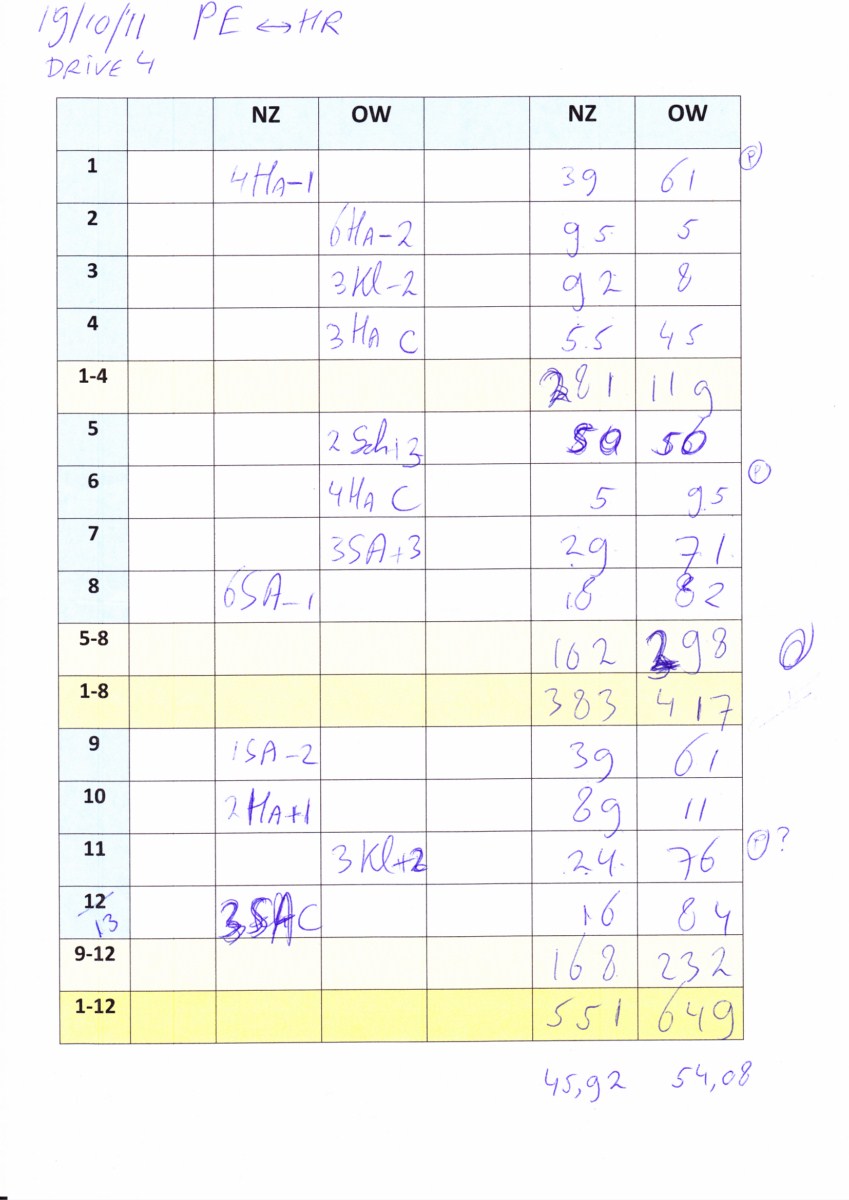 19/10/'11 PE ↔ HR
DRIVE 4
NZ OW NZ OW
1 4HA-1 39 61 (P)
2 6HA-2 95 5
3 3Kl-2 92 8
4 3HA C 55 45
1-4 281 119
5 2 Sch+3 50 50
6 4HA C 5 95 (P)
7 3SA+3 29 71
8 6SA-1 18 82
5-8 102 298
1-8 383 417
9 1SA-2 39 61
10 2HA+1 89 11
11 3Kl+2 24 76 ?
12/13 3SA C 16 84
9-12 168 232
1-12 551 649
45,92 54,08